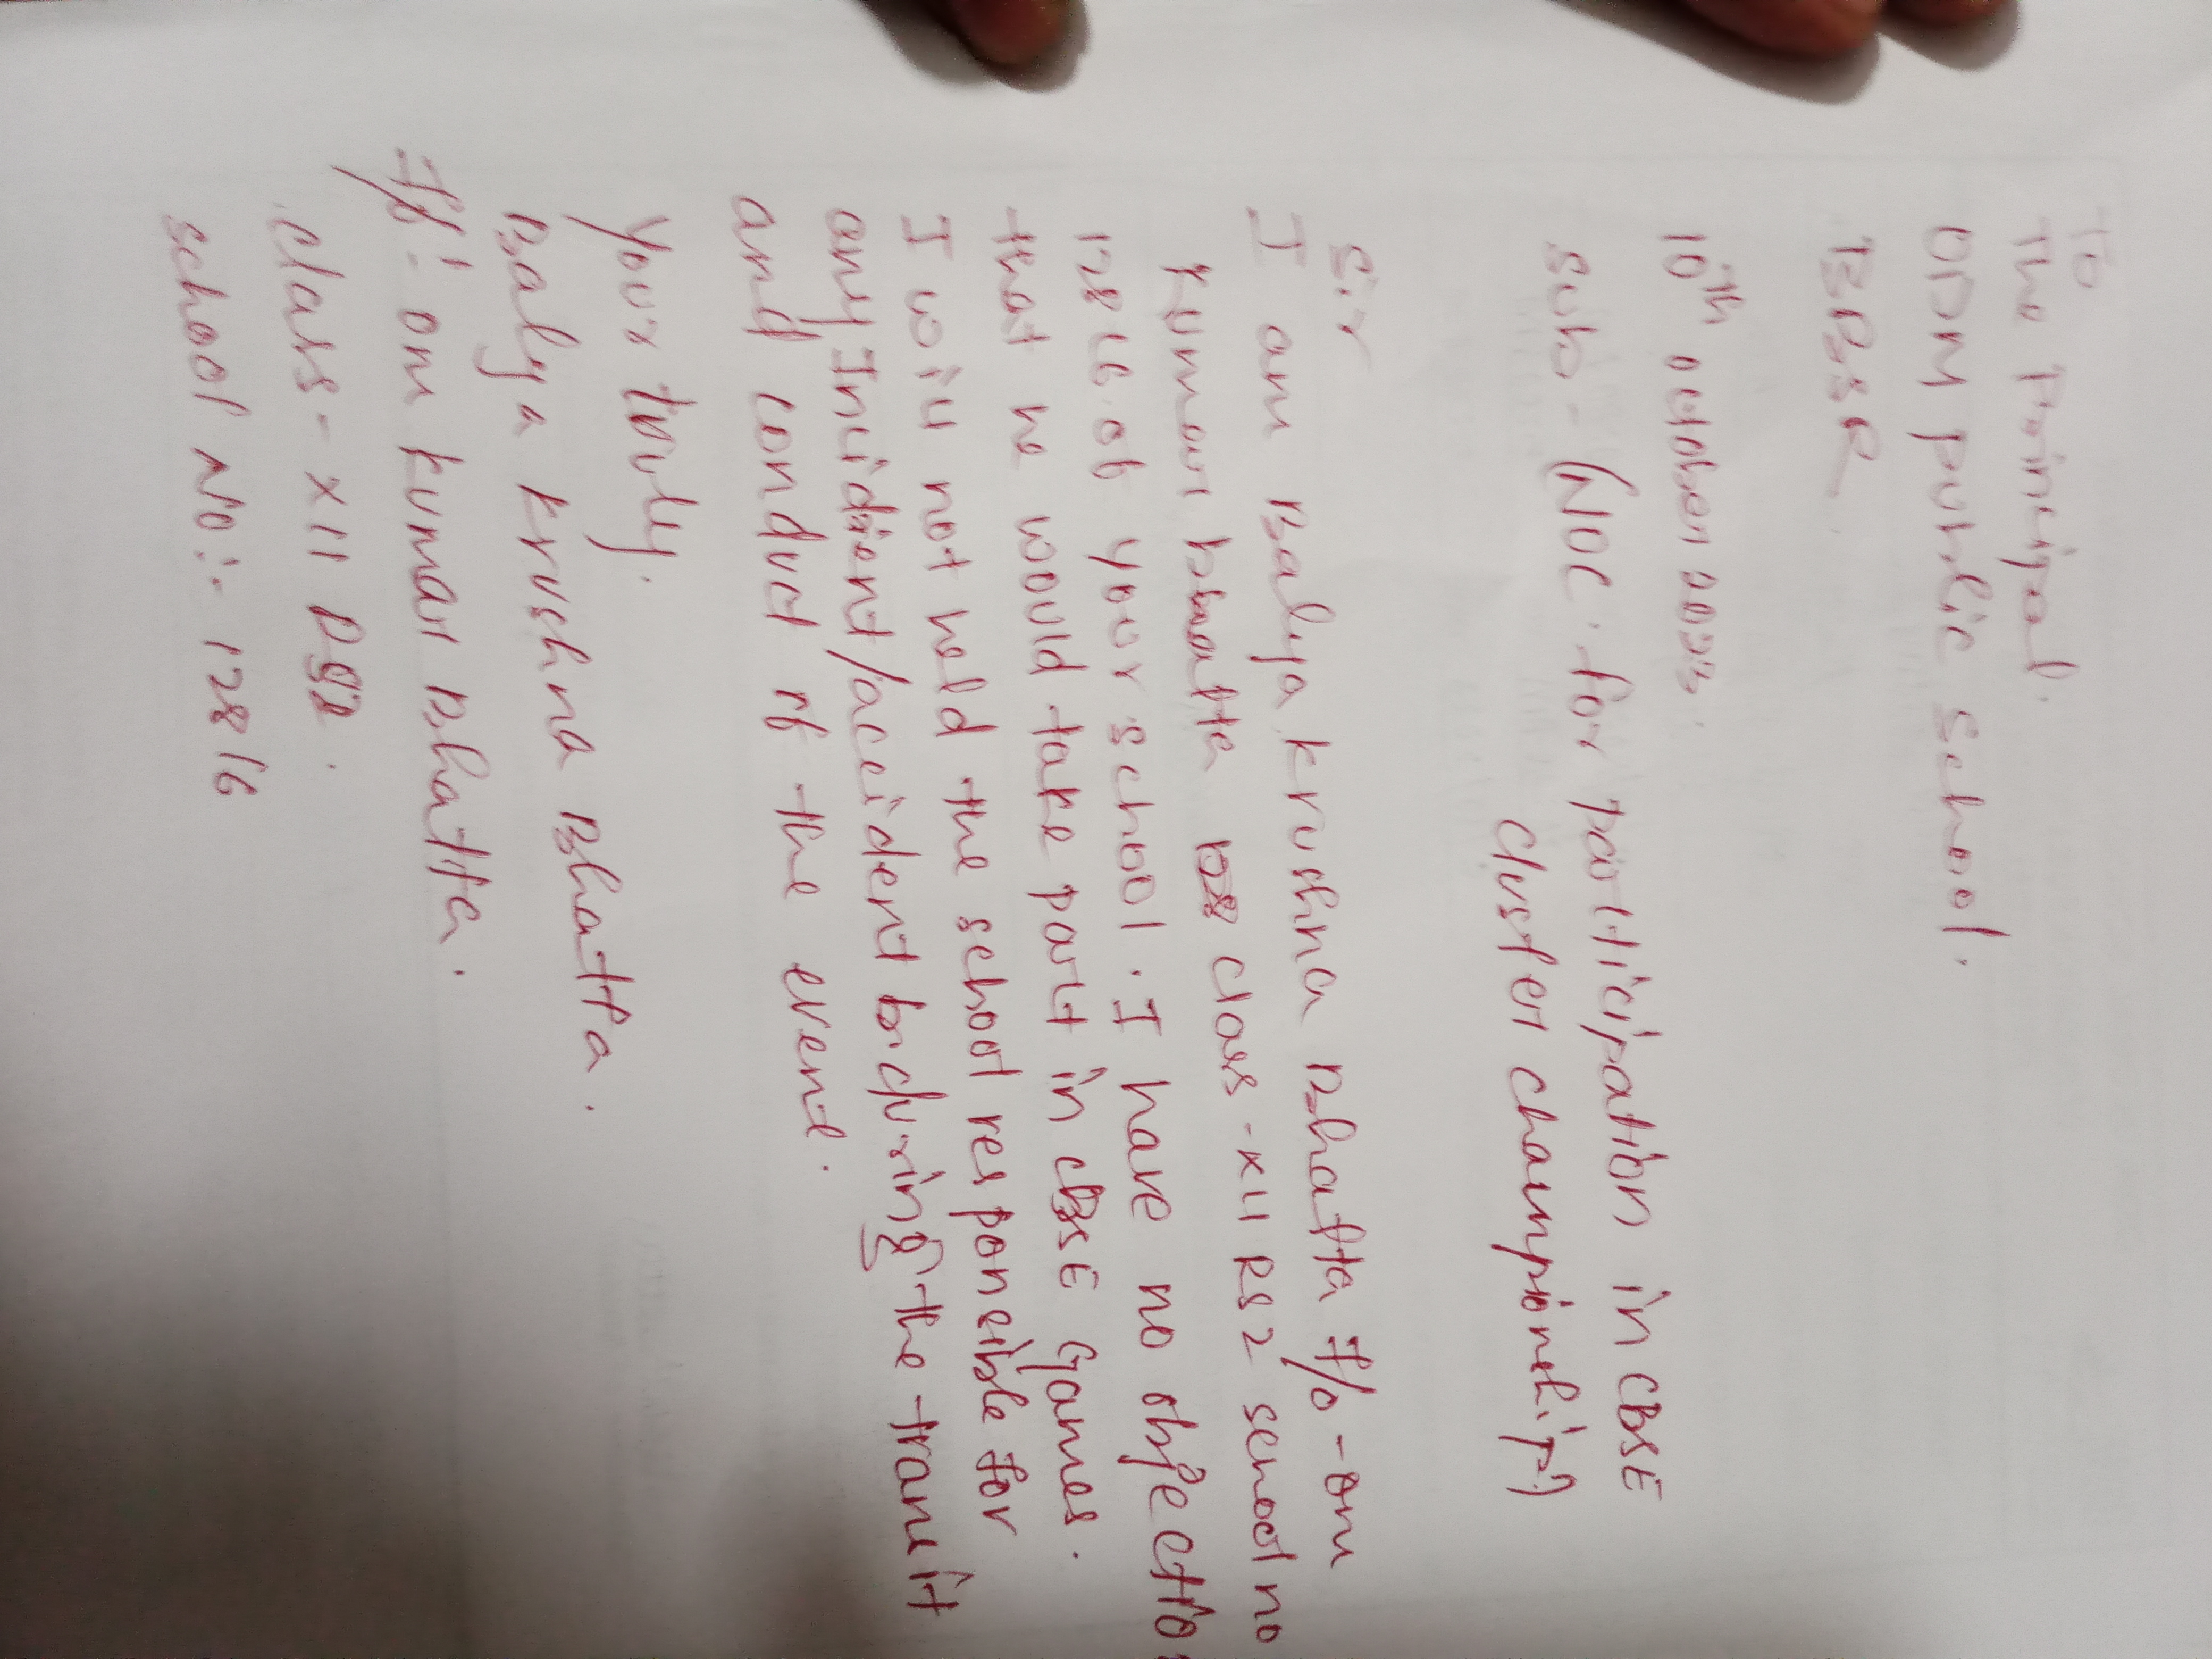 To
The Principal.
ODM public school.
BBSR
10th october 2023.
Sub - (NOC. for participation in CBSE
cluster championship)
Sir
I am Balya krushna Bhatta F/o - om
kumar bhatta class - XII RS2 school no
12816 of your school. I have no objection
that he would take part in CBSE Games.
I will not held the school responsible for
any Incident/accident during the transit
and conduct of the event.
Your truly.
Balya krushna Bhatta.
F/o: om kumar Bhatta.
class - XII
school No:- 12816